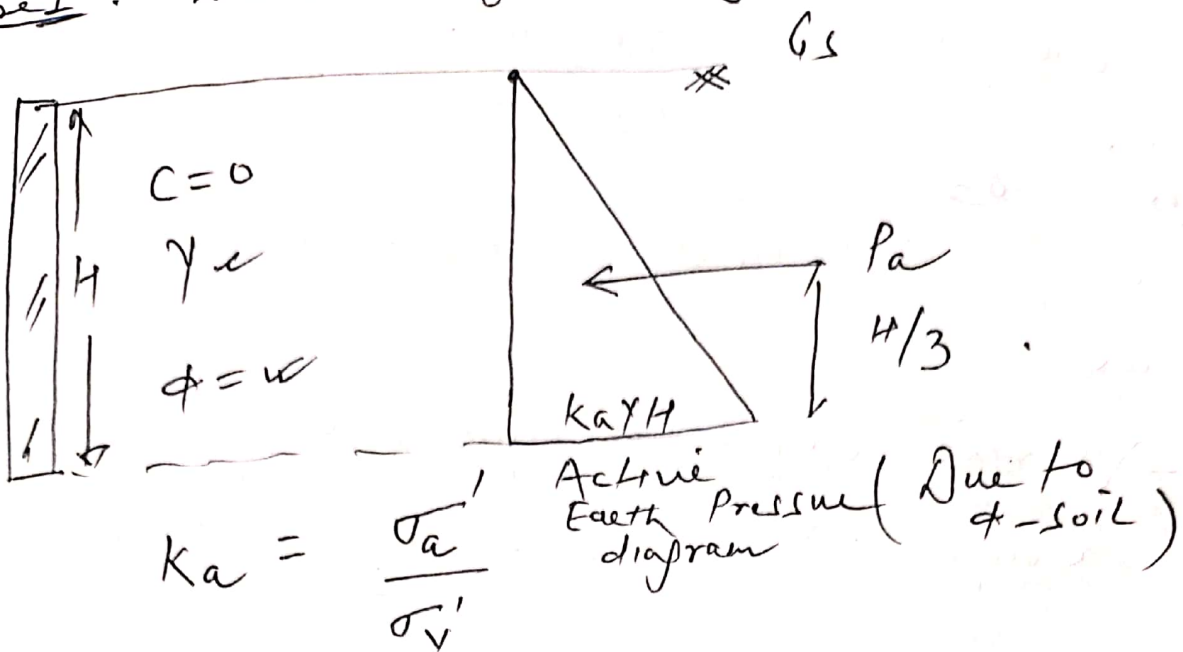 GS
C = 0
γ
H
ϕ =
Pa
H/3
kaγH
Active
Earth Pressure (Due to
diagram ϕ-soil)
Ka = σa' / σv'